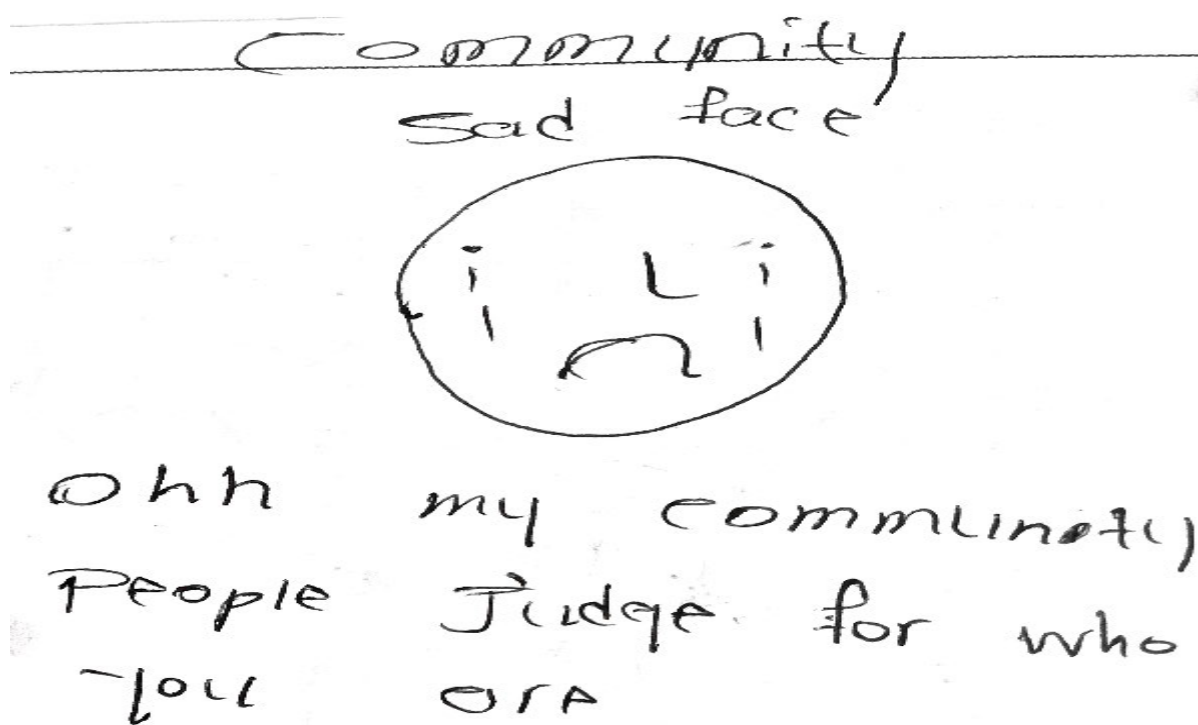 Community
Sad face
Ohh my community
People Judge for who
you are